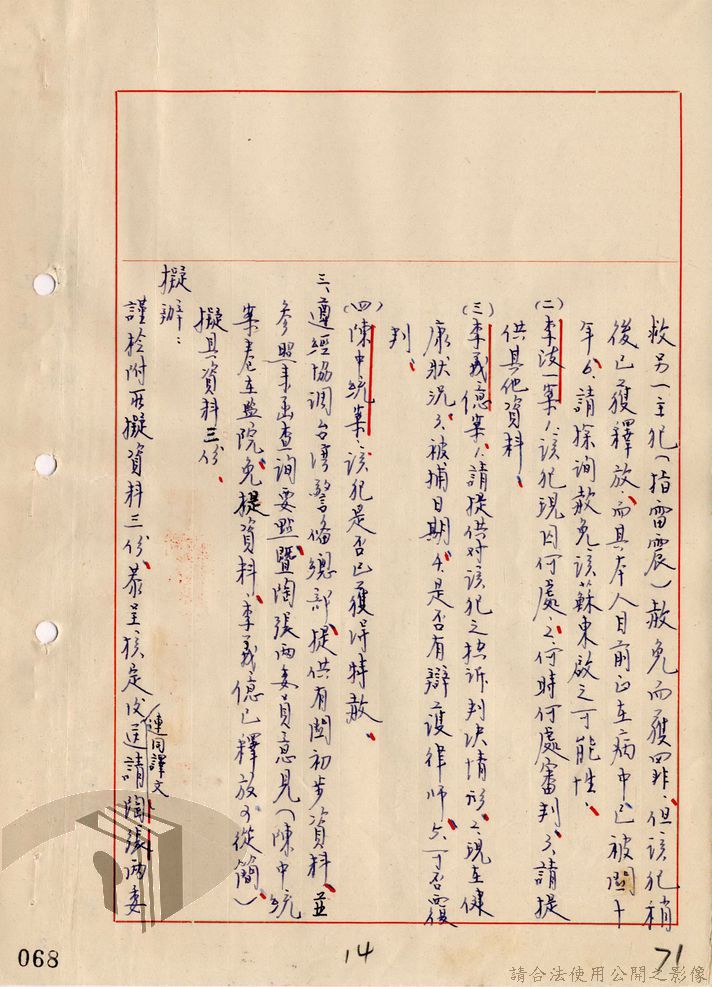 救另一主犯(指雷震)赦免而獲罪、但該犯稍
後已獲釋放、而其本人目前正在病中已被關十
年、6、請探詢赦免該蘇東啟之可能性、
(二)李 案:1、該犯現因何處、2、何時何處審判、3、請提
供其他資料、
(三)李義億案:1、請提供対該犯之控訴判決情形、2、現在健
康狀況、3、被捕日期、4、是否有辯護律師、5、可否覆
判、
(四)陳中統案:該犯是否已獲得特赦、
三、遵經協調台湾警偹總部提供有関初步資料、並
參照來函查詢要點暨陶張两委員意見(陳中統
案卷在監院免提資料、李義億已釋放可從簡)
擬具資料三份、
擬辦:
謹檢附所擬資料三份、恭呈核定後連同譯文送請陶張两委
068
14
71
請合法使用公開之影像